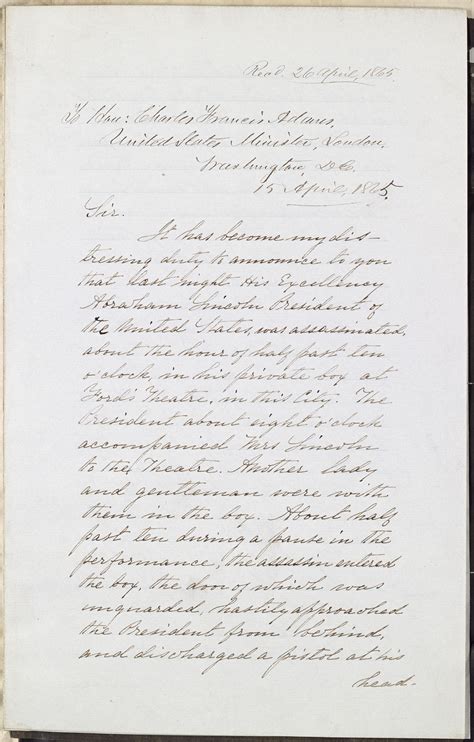 Recd. 26 April, 1865.
To Hon: Charles Francis Adams,
United States Minister, London.
Washington, D.C.
15 April, 1865.
Sir.
It has become my dis-
tressing duty to announce to you
that last night His Excellency
Abraham Lincoln President of
the United States, was assassinated,
about the hour of half past ten
o'clock, in his private box at
Ford's Theatre, in this City. The
President about eight o'clock
accompanied Mrs Lincoln
to the Theatre. Another lady
and gentleman were with
them in the box. About half
past ten during a pause in the
performance, the assassin entered
the box, the door of which was
unguarded, hastily approached
the President from behind,
and discharged a pistol at his
head.